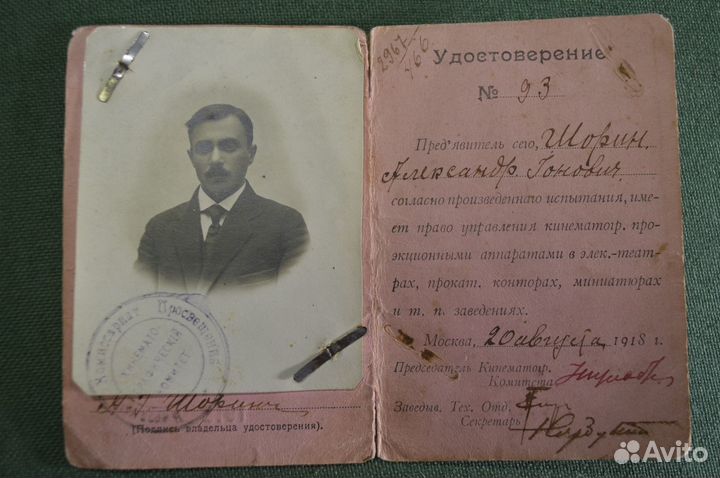 Комиссариат Просвещения
Кинемато-
графический
Комитет
А. І. Шоринъ
(Подпись владельца удостоверения).
2967/466
Удостоверение
№ 93
Пред'явитель сего, Шорин
Александр Іонович
согласно произведеннаго испытания, име-
ет право управления кинематогр. про-
экционными аппаратами в элек.-теат-
рах, прокат. конторах, миниатюрах
и т. п. заведениях.
Москва, 20 августа 1918 г.
Председатель Кинематогр.
Комитета
Заведыв. Тех. Отд.
Секретарь
Avito